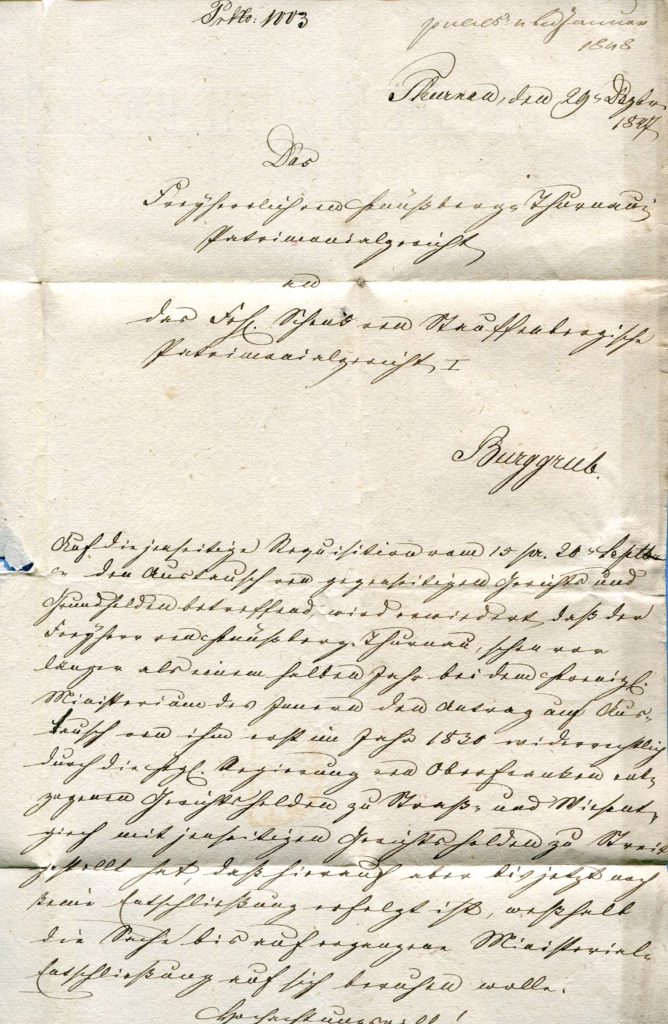 Prtkl: 1003
Januar
1848
Thurnau, den 29. Dezbr.
1847
Das
Freyherrlich von Künßberg-Thurnaui
Patrimonialgericht
an
das Frh. Schenk von Stauffenbergische
Patrimonialgericht I
Burggrub.
Auf diejenseitige Requisition vom 15 pr. 20. Septbr.
den Austausch von gegenseitigen Gerichts und
Grundholden betreffend wird erwiedert, daß der
Freyherr von Künßberg-Thurnau, schon vor
länger als einem halben Jahr bei dem Koenigl.
Ministerium des Innern den Antrag um Aus-
tausch von ihm erst im Jahr 1830 widerrechtlich
durch die kgl. Regierung von Oberfranken ent-
zogenen Gerichtsholden zu Straß- und Wiesent-
mit jenseitigen Gerichtsholden zu Streit
gestellt hat, daß hierauf aber bis jetzt noch
keine Entschließung erfolgt ist, weßhalb
die Sache bis auf ergangene Ministerial-
Entschließung auf sich beruhen wolle.
Hochachtungsvoll!